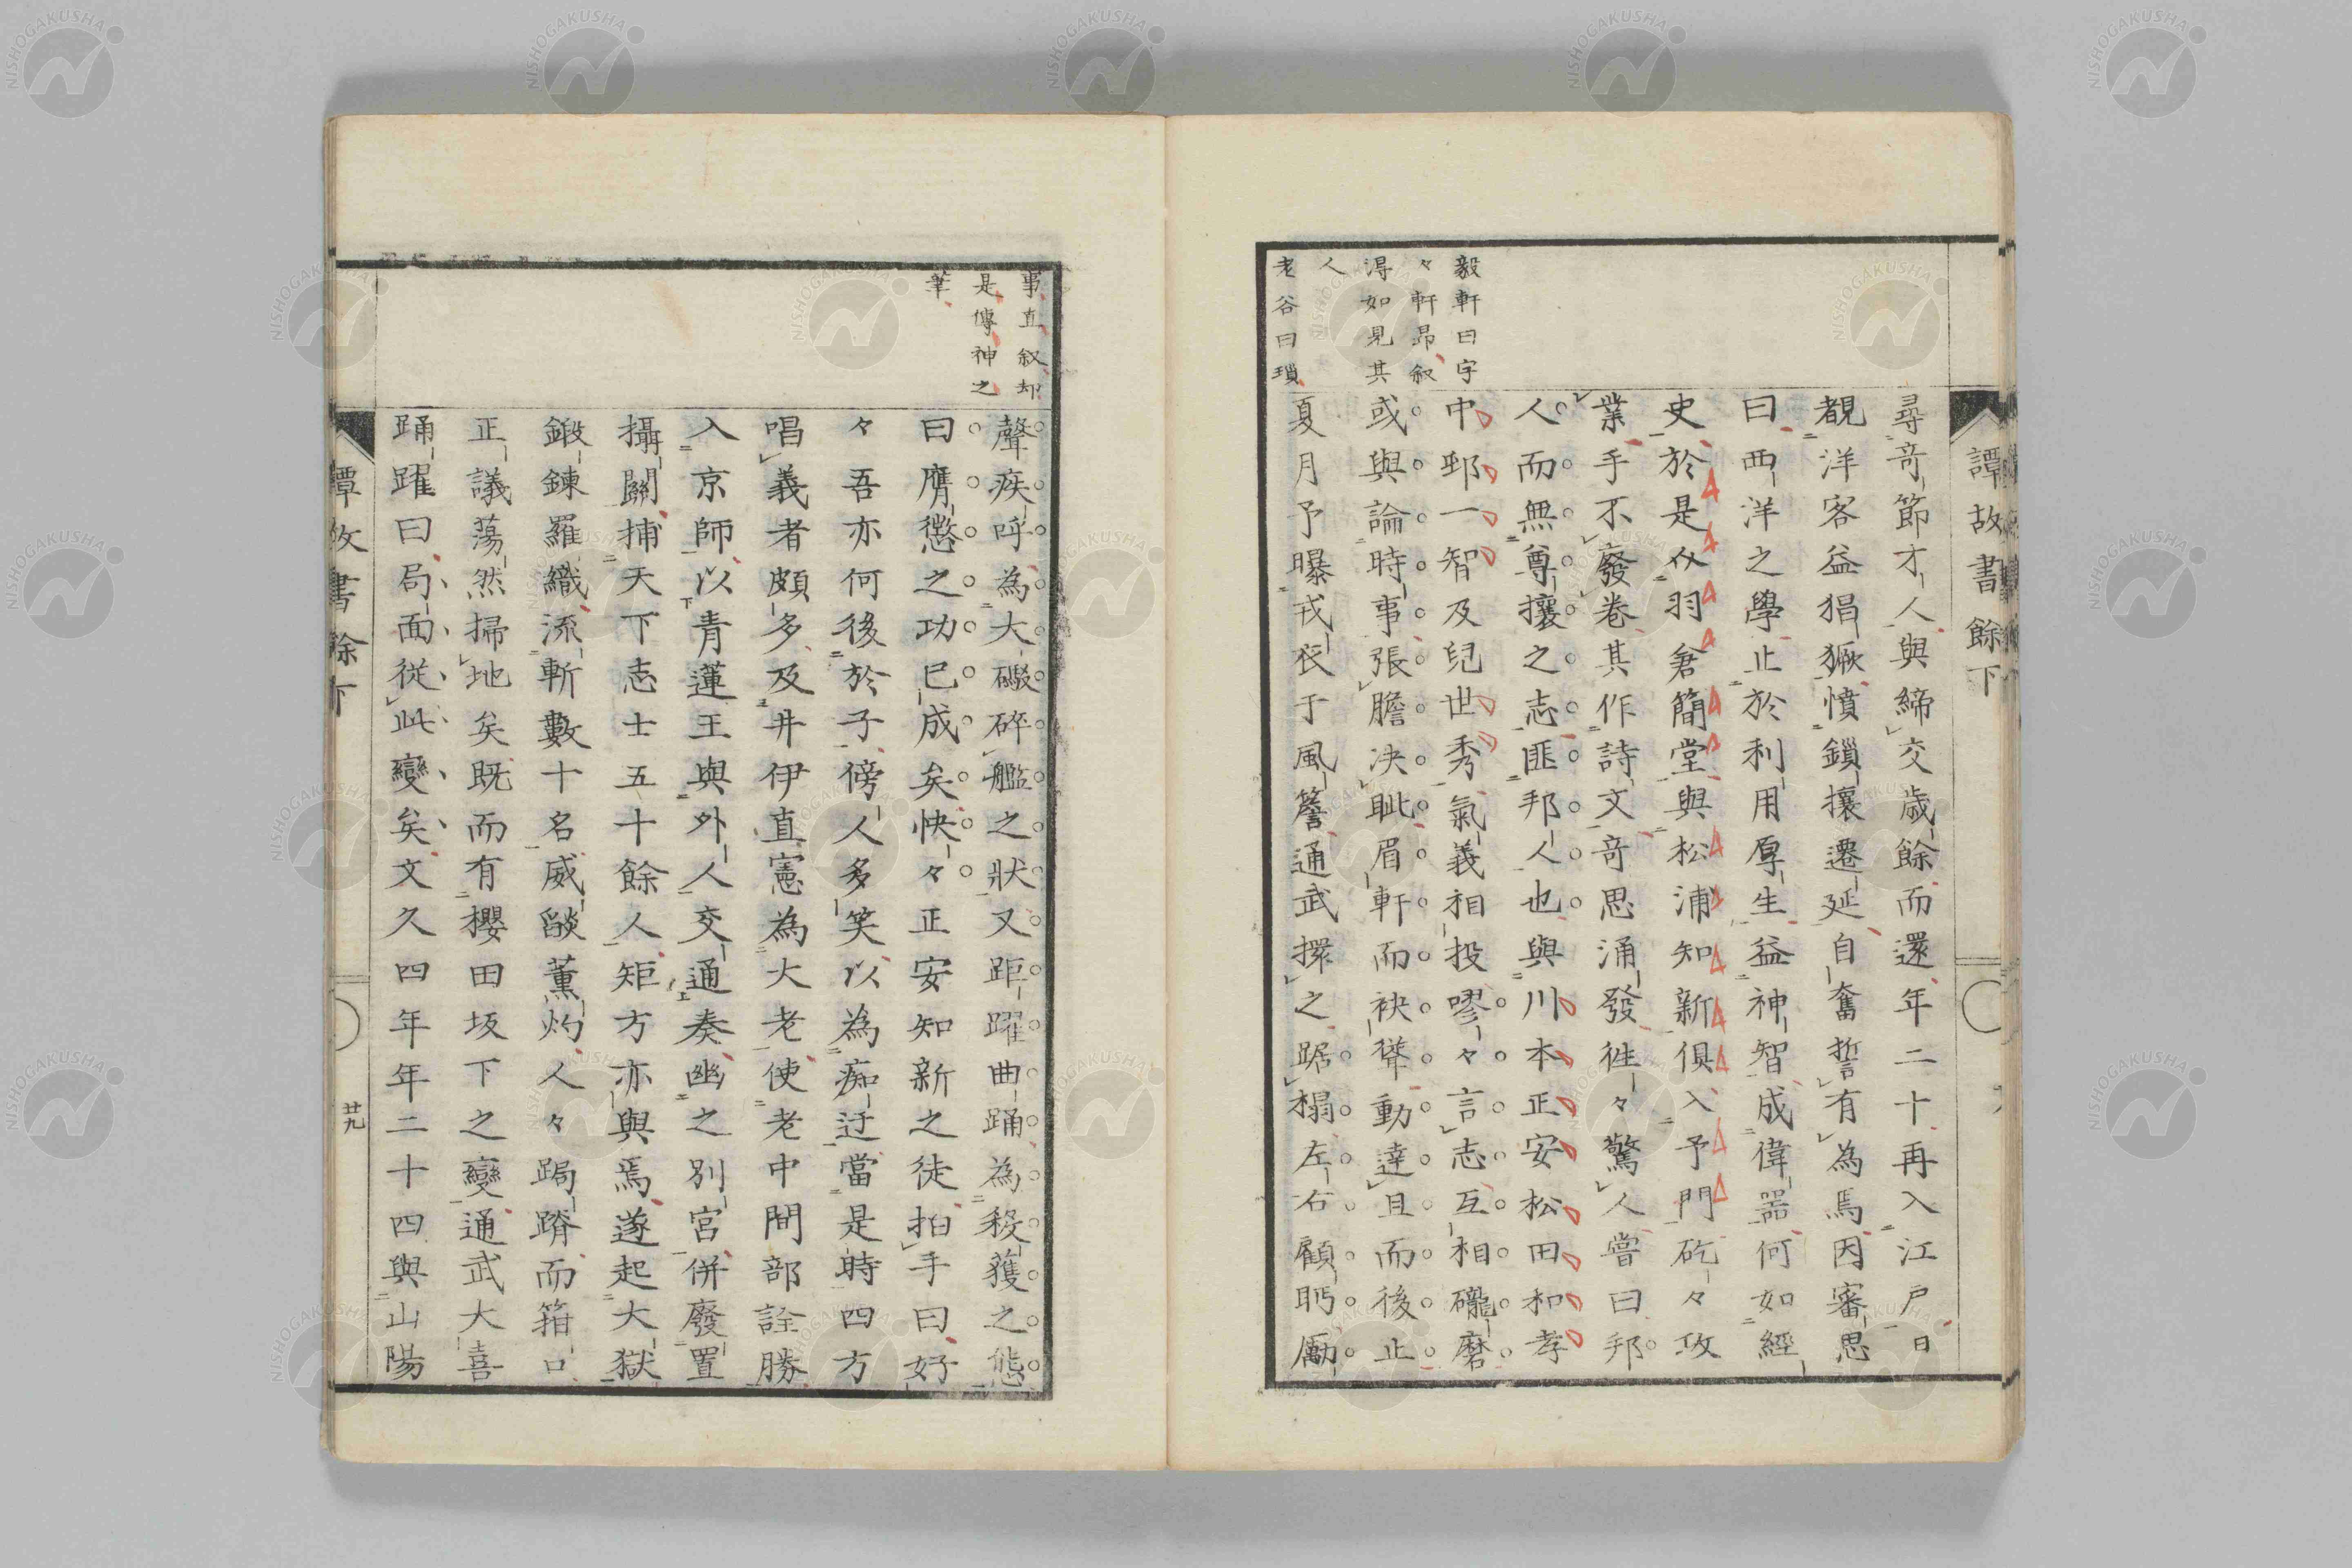 譚故書餘下
尋奇節才人與締交歳餘而還年二十再入江戸日
覩洋客益猖獗憤鎖攘遷延自奮誓有為焉因審思
曰西洋之學止於利用厚生益神智成偉器何如經
史於是从羽倉簡堂與松浦知新俱入予門矻々攻
業手不廢卷其作詩文奇思涌發徃々驚人嘗曰邦
人而無尊攘之志匪邦人也與川本正安松田和孝
中邨一智及兒世秀氣義相投嘐々言志互相礲磨
或與論時事張膽決眦眉軒而袂聳動達旦而後止
夏月予曝戎衣于風簷通武擐之踞榻左右顧眄勵
毅軒曰字
々軒昂叙
得如見其
人
老谷曰瑣
聲疾呼為大礮碎艦之狀又距躍曲踊為殺獲之態
曰膺懲之功已成矣快々正安知新之徒拍手曰好
々吾亦何後於子傍人多笑以為痴迂當是時四方
唱義者頗多及井伊直憲為大老使老中間部詮勝
入京師以青蓮王與外人交通奏幽之別宮併廢置
攝關捕天下志士五十餘人矩方亦與焉遂起大獄
鍛鍊羅織流斬數十名威燄薫灼人々跼蹐而箝口
正議蕩然掃地矣既而有櫻田坂下之變通武大喜
踊躍曰局面從此變矣文久四年年二十四與山陽
事直叙却
是傳神之
筆
譚故書餘下
廿九